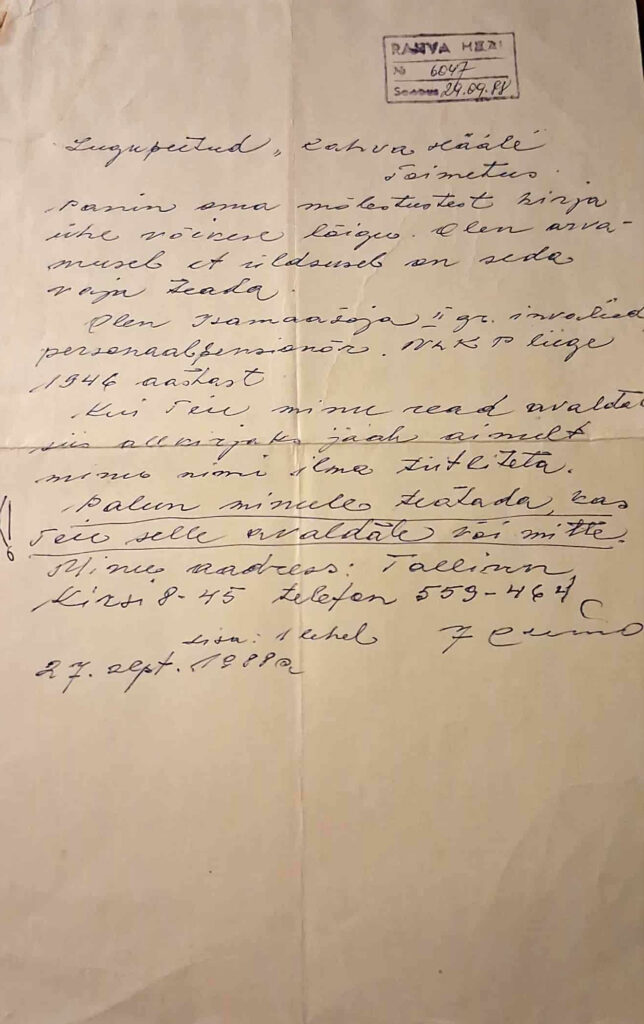 RAHVA HÄÄL
№ 6047
Saadud 29.09.88
Lugupeetud „Rahva Hääle"
Toimetus.
Panin oma mälestustest kirja
ühe väikese lõigu. Olen arva-
musel et üldsusel on seda
vaja teada.
Olen Isamaasõja II gr. invaliid
personaalpensionär. NLKP liige
1946 aastast
Kui Teie minu read avaldate
siis allkirjaks jääb ainult
minu nimi ilma tiitliteta.
Palun minule teatada, kas
Teie selle avaldate või mitte.
Minu aadress: Tallinn
Kirsi 8-45 telefon 559-464
Lisa: 1 lehel
27. sept. 1988a